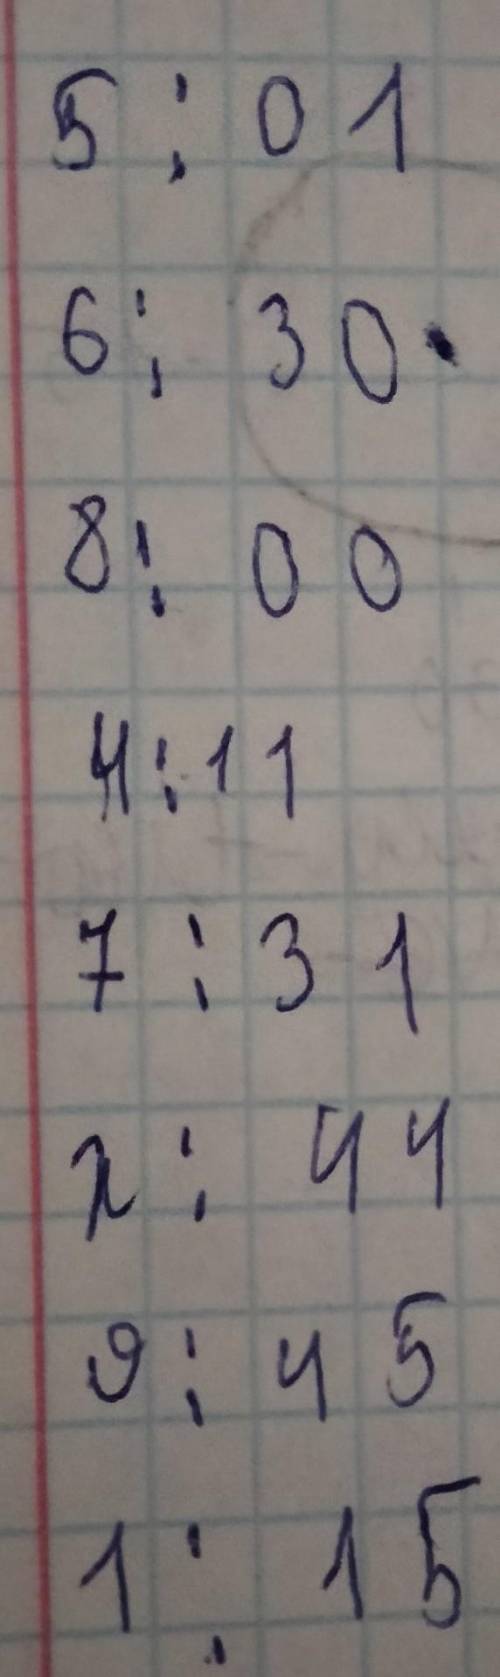 5:01
6:30
8:00
4:11
7:31
2:44
9:45
1:15